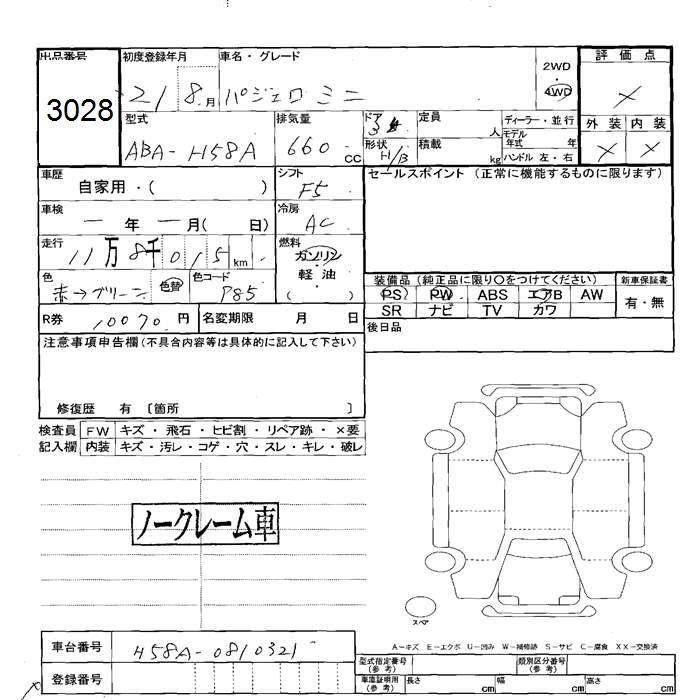 出品番号 初度登録年月 車名・グレード 2WD ・ 4WD 評価点
3028 21 8月 パジェロミニ ×
型式 排気量 ドア 3 定員 人 ディーラー・並行 外装 内装
ABA-H58A 660 CC 形状 H/B 積載 kg モデル年式 年 ハンドル 左・右 × ×
車歴 自家用・( ) シフト F5 セールスポイント (正常に機能するものに限ります)
車検 ー年 ー月( 日) 冷房 AC
走行 11万8千015km 燃料 ガソリン 軽油 ( )
色 赤→グリーン 色替 色コード P85 装備品 (純正品に限り〇をつけてください) 新車保証書
PS PW ABS エアB AW 有・無
SR ナビ TV カワ
R券 10070円 名変期限 月 日 後日品
注意事項申告欄 (不具合内容等は具体的に記入して下さい)
修復歴 有 〔箇所 〕
検査員 FW キズ・飛石・ヒビ割・リペア跡・×要
記入欄 内装 キズ・汚レ・コゲ・穴・スレ・キレ・破レ
ノークレーム車
スペア
A-キズ E-エクボ U-凹み W-補修跡 S-サビ C-腐食 XX-交換済
車台番号 H58A-0810321
登録番号
型式指定番号(参考) 類別区分番号(参考)
車庫証明用(参考) 長さ cm 幅 cm 高さ cm